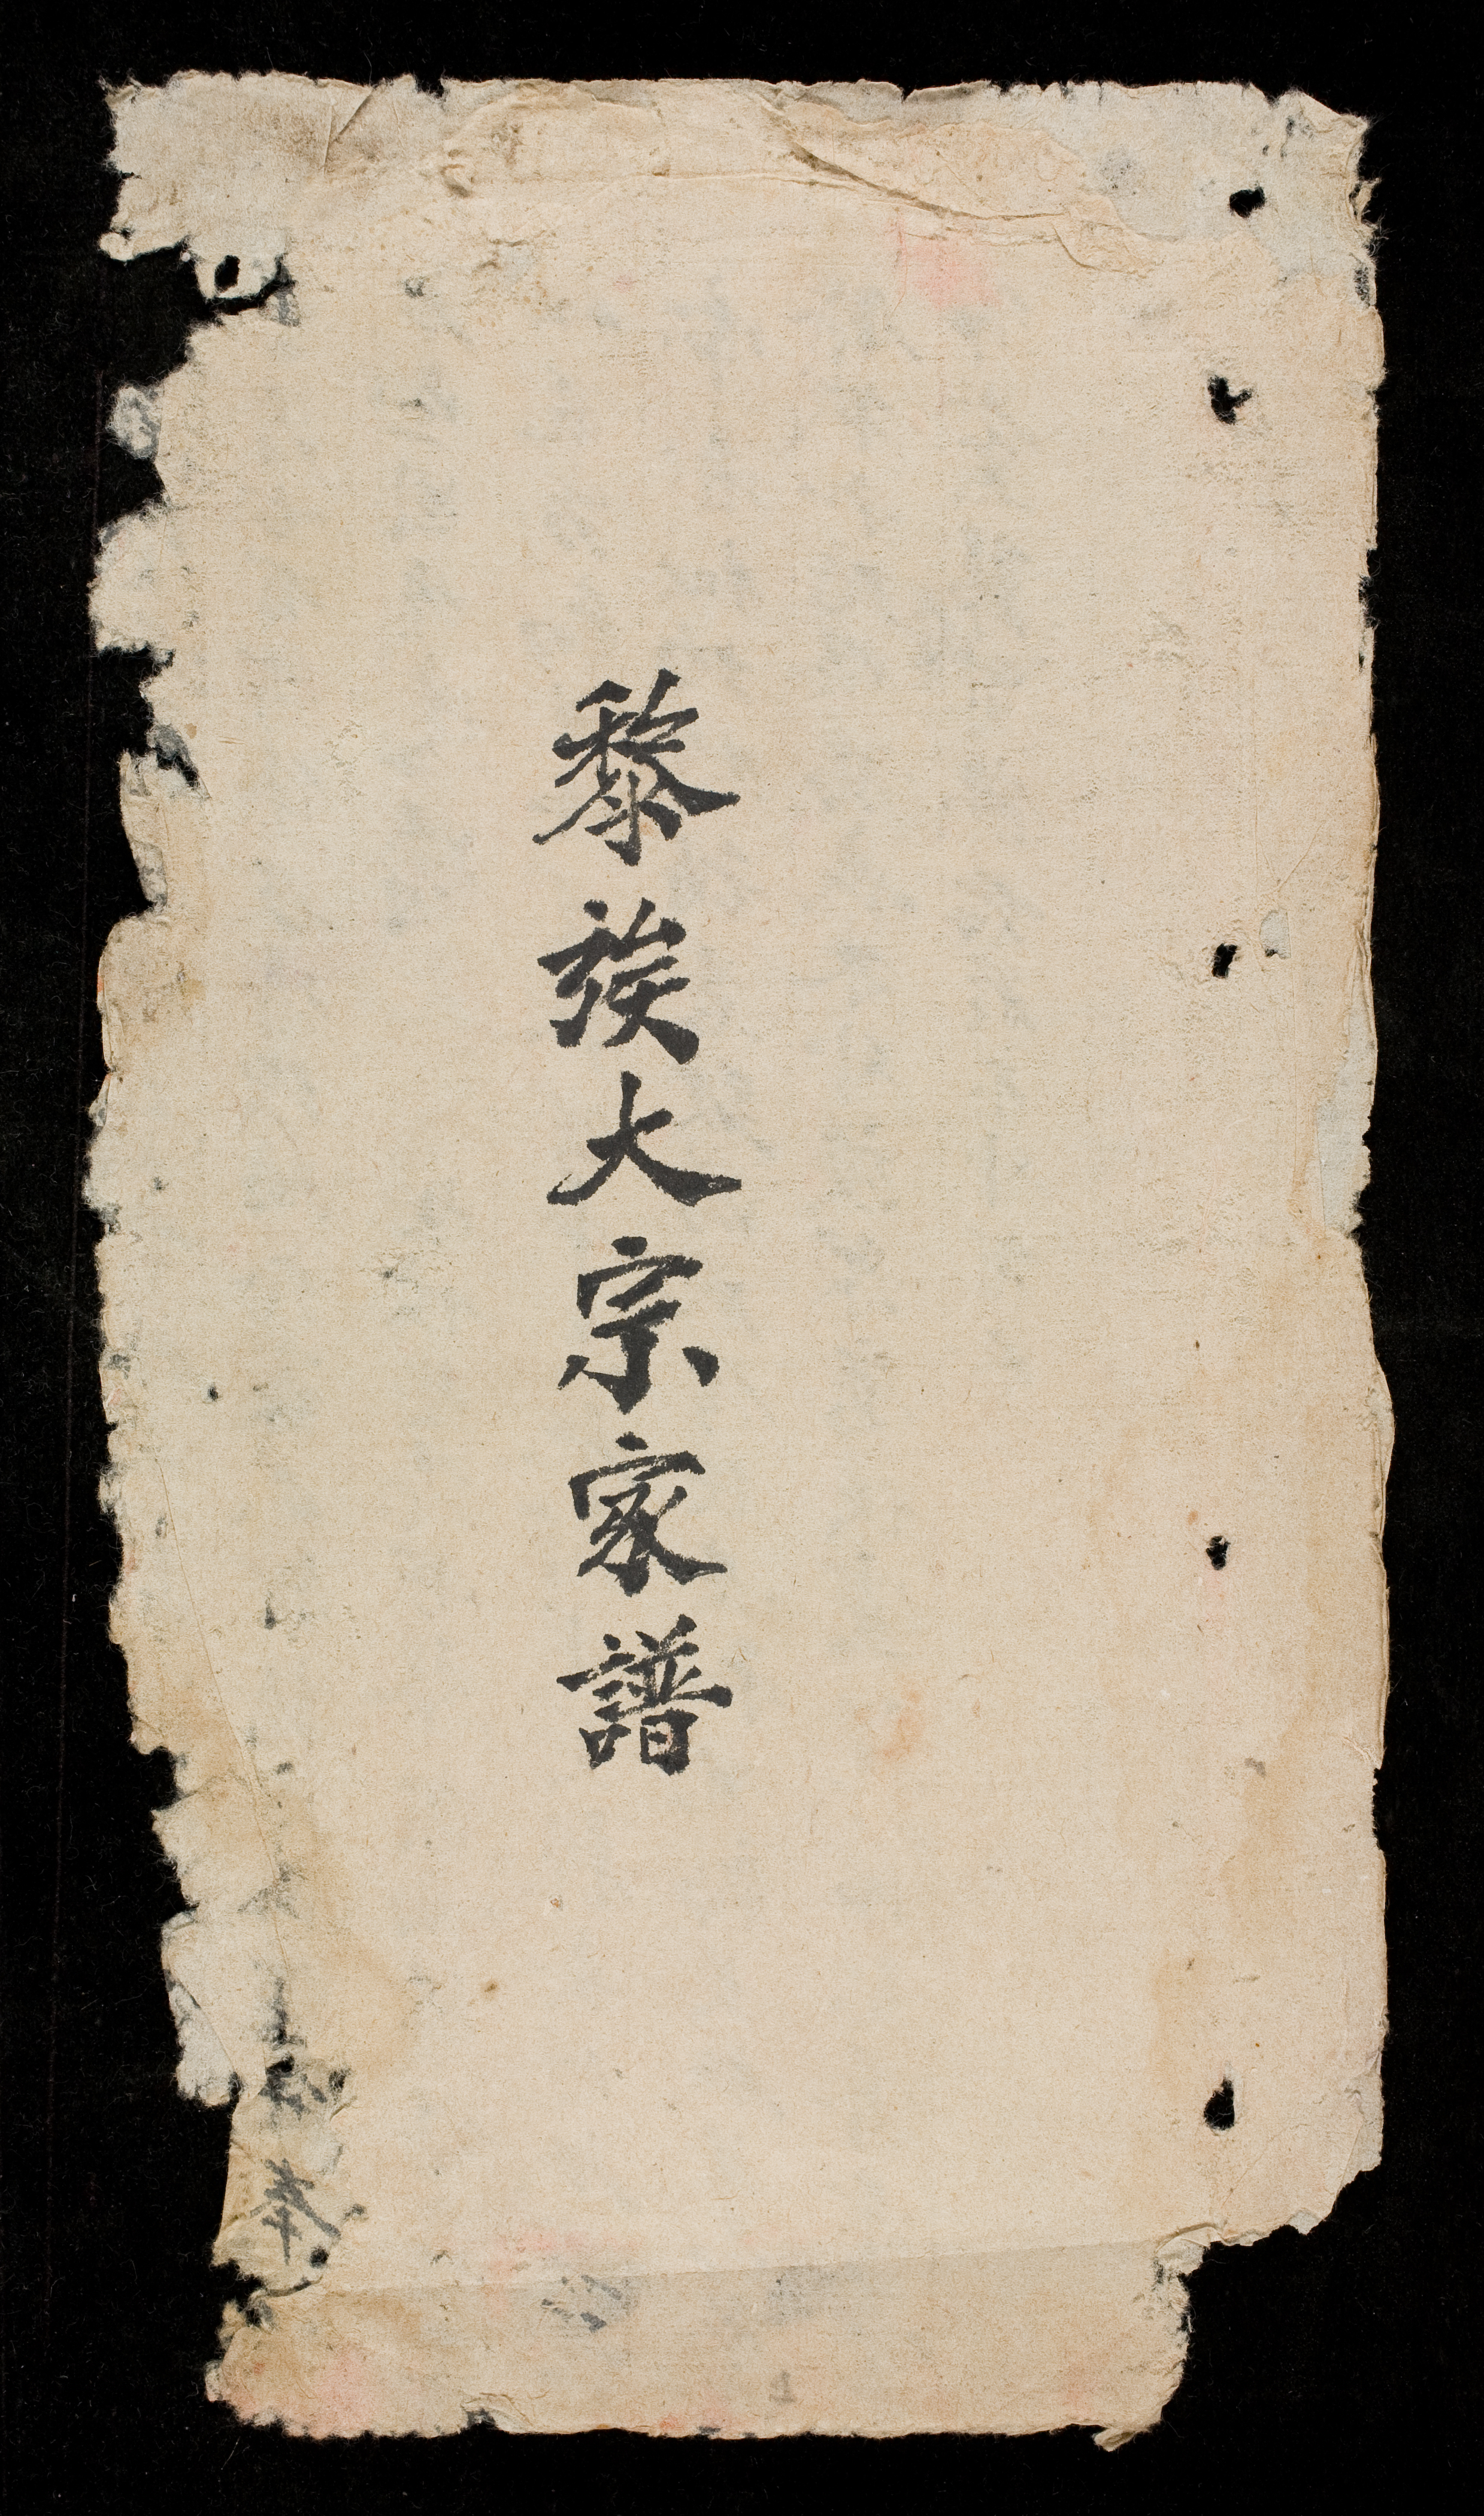 黎族大宗家譜
奉